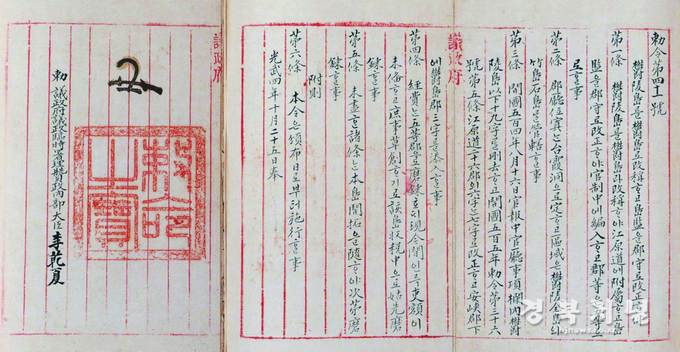 勅令第四十一號
鬱陵島를鬱島로改稱ᄒᆞ고島監을郡守로改正ᄒᆞᆫ件
第一條 鬱陵島를鬱島라改稱ᄒᆞ야江原道에附屬ᄒᆞ고島
監을郡守로改正ᄒᆞ야官制中에編入ᄒᆞ고郡等은五等으
로ᄒᆞᆯ事
第二條 郡廳位寘는台霞洞으로定ᄒᆞ고區域은鬱陵全島와
竹島石島를管轄ᄒᆞᆯ事
第三條 開國五百四年八月十六日官報中官廳事項欄內鬱
陵島以下十九字를刪去ᄒᆞ고開國五百五年勅令第三十六
號第五條江原道二十六郡의六字는七字로改正ᄒᆞ고安峽郡下
議政府
에鬱島郡三字를添入ᄒᆞᆯ事
第四條 經費는五等郡으로磨鍊호되現今間인즉吏額이
未備ᄒᆞ고庶事草創ᄒᆞ기로該島收稅中으로姑先磨
鍊ᄒᆞᆯ事
第五條 未盡ᄒᆞᆫ諸條는本島開拓을隨ᄒᆞ야次第磨
鍊ᄒᆞᆯ事
附則
第六條 本令은頒布日로부터施行ᄒᆞᆯ事
光武四年十月二十五日奉
議政府
勅命之寶
勅 議政府議政臨時署理贊政內部大臣李乾夏
경북신문